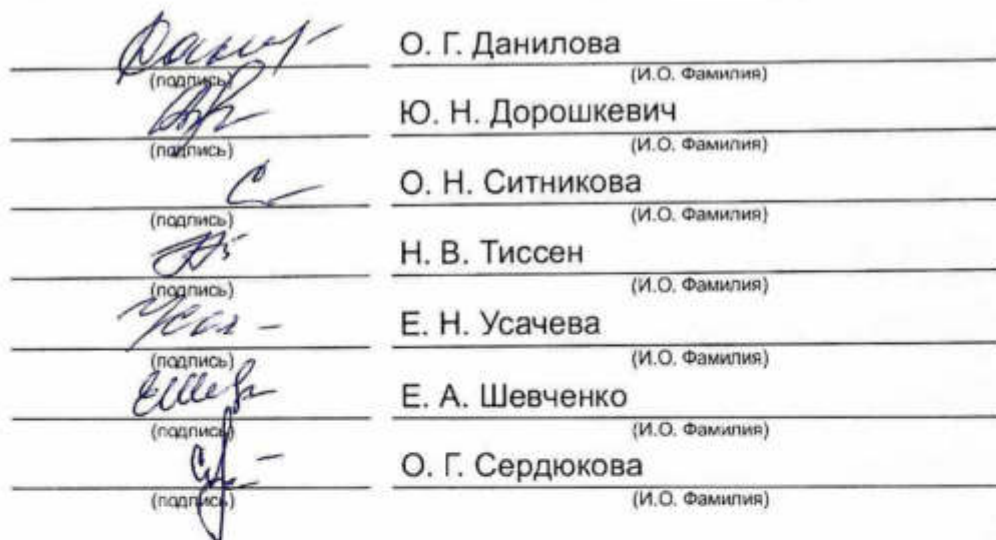 О. Г. Данилова
(подпись) (И.О. Фамилия)
Ю. Н. Дорошкевич
(подпись) (И.О. Фамилия)
О. Н. Ситникова
(подпись) (И.О. Фамилия)
Н. В. Тиссен
(подпись) (И.О. Фамилия)
Е. Н. Усачева
(подпись) (И.О. Фамилия)
Е. А. Шевченко
(подпись) (И.О. Фамилия)
О. Г. Сердюкова
(подпись) (И.О. Фамилия)